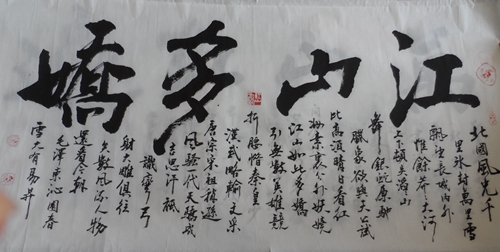 江山多嬌
北國風光千
里冰封萬里雪
飄望長城內外
惟餘莽莽大河
上下頓失滔滔山
舞銀蛇原馳
臘象欲與天公試
比高須晴日看紅
裝素裹分外妖嬈
江山如此多嬌
引無數英雄競
折腰惜秦皇
漢武略輸文采
唐宗宋祖稍遜
風騷一代天驕成
吉思汗祇
識彎弓
射大雕俱往
矣數風流人物
還看今朝
毛澤東沁園春
雪